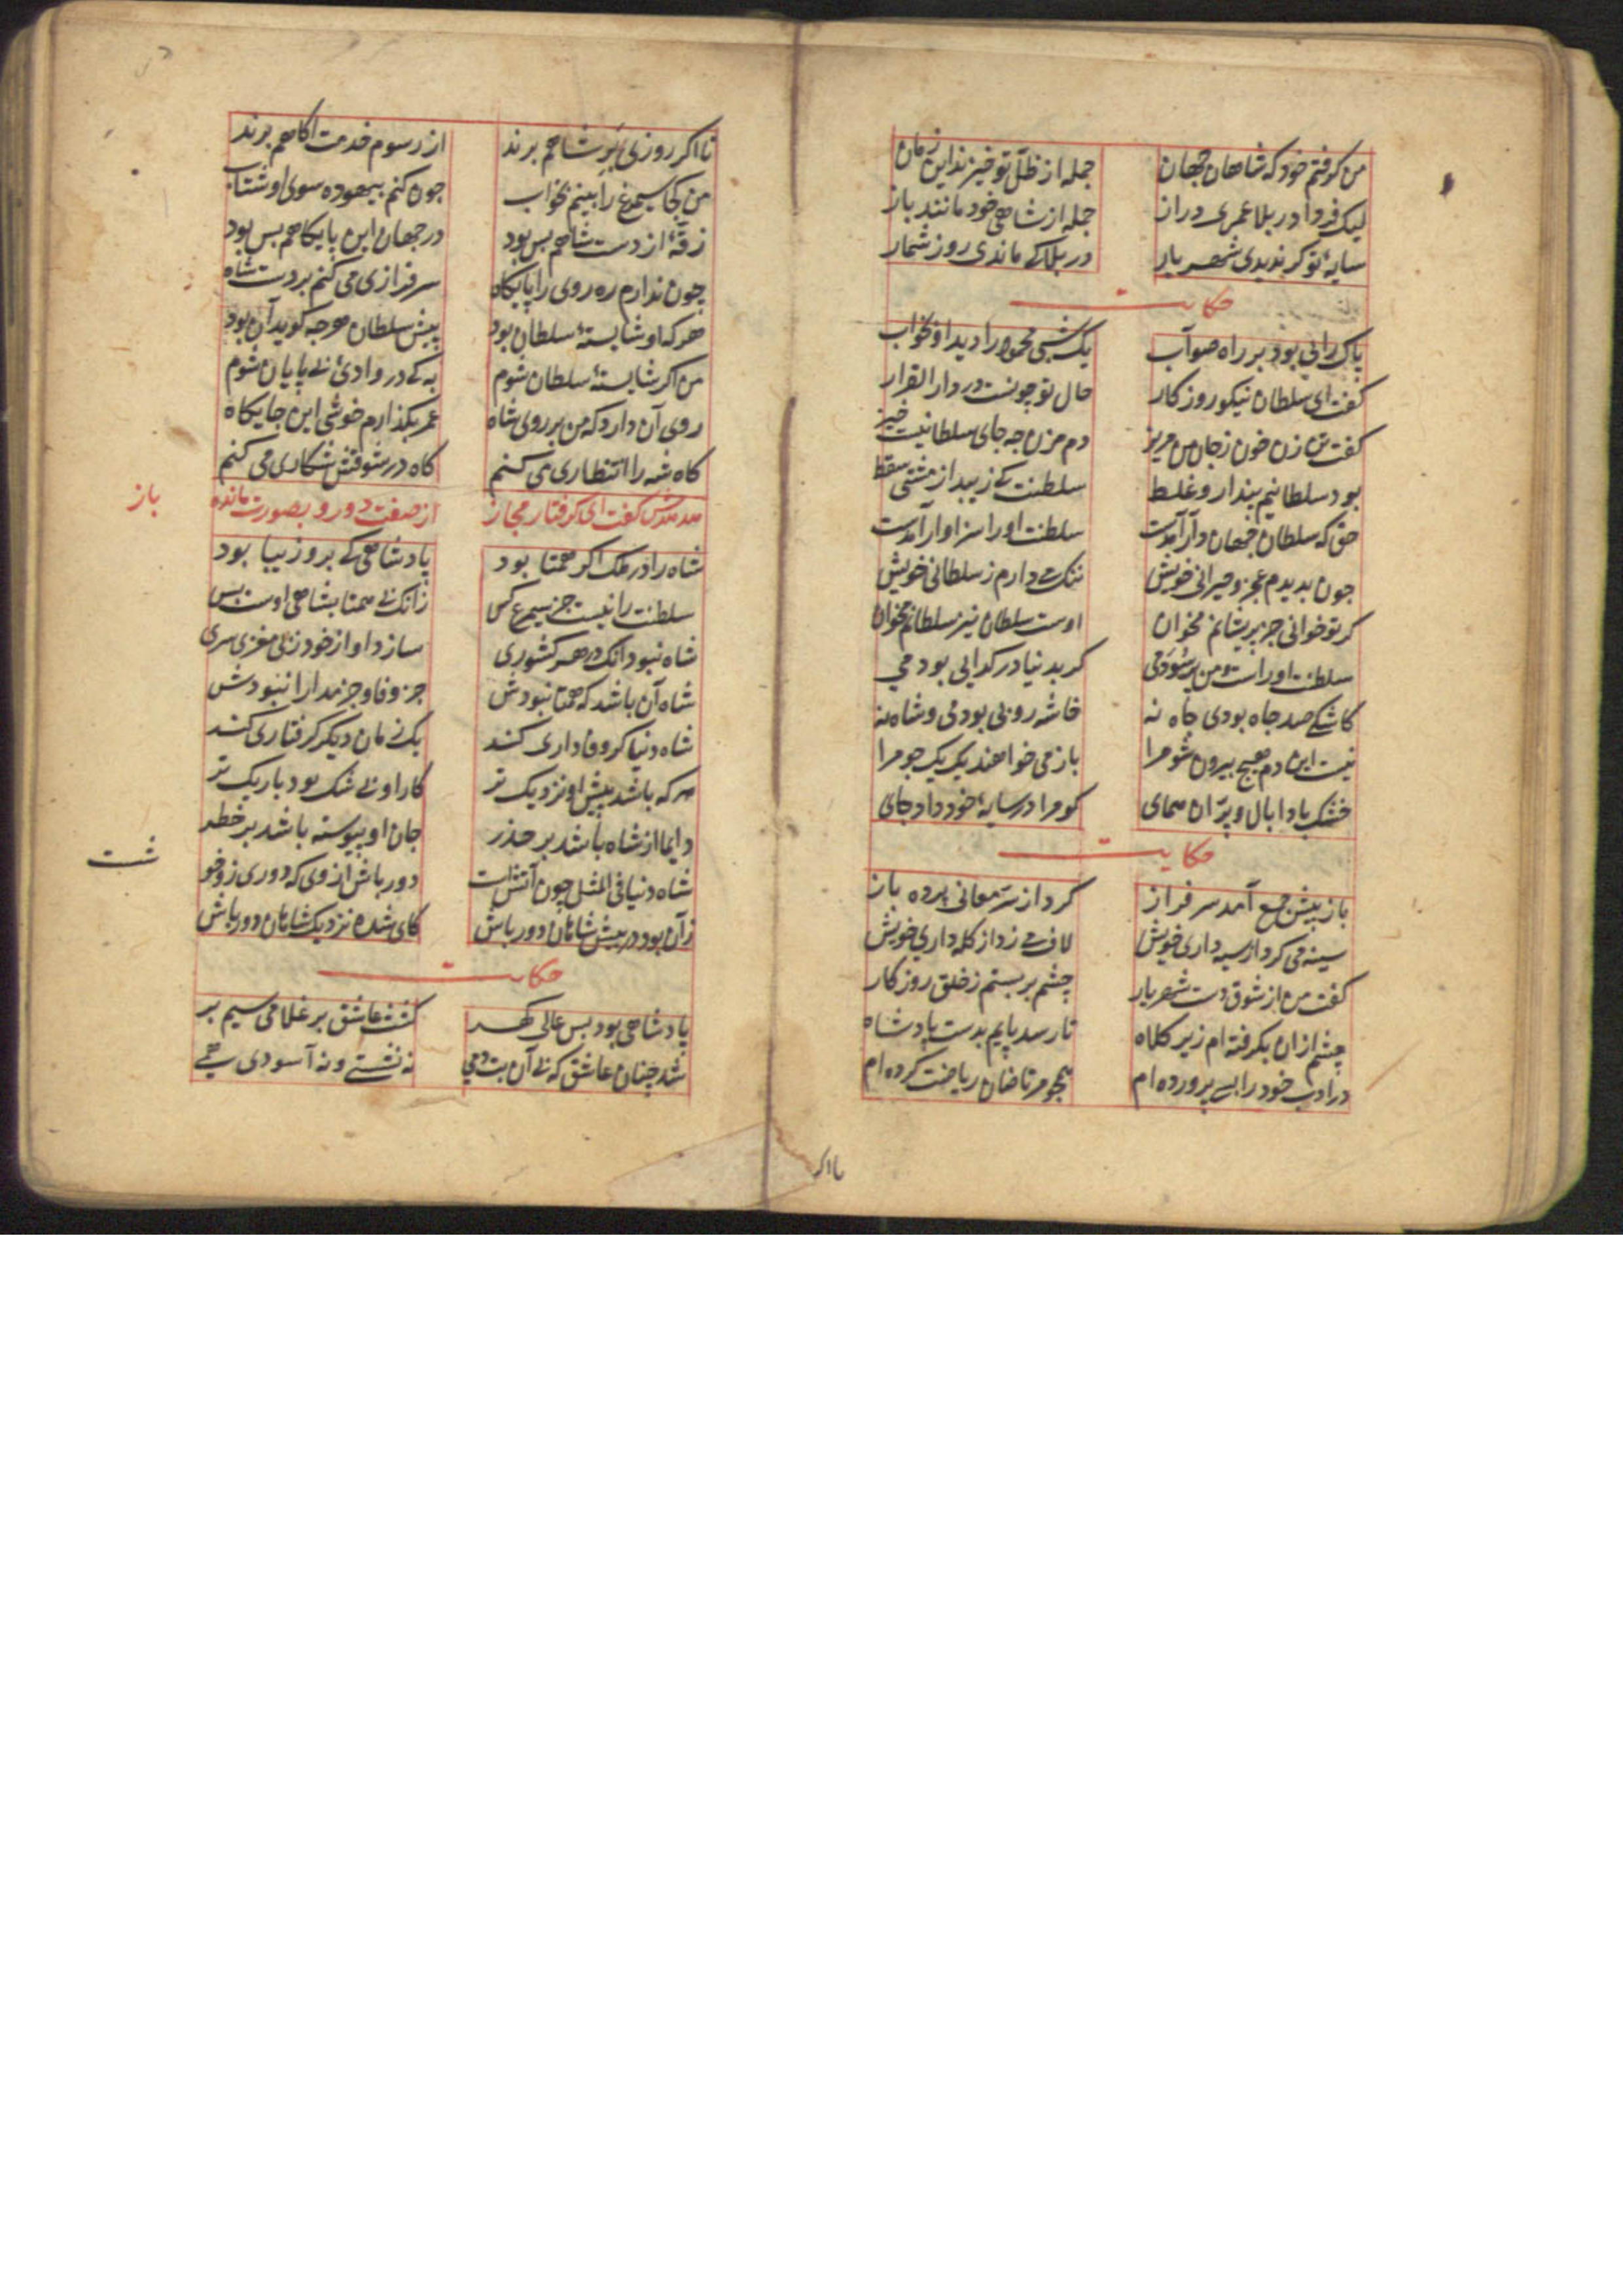 من گرفتم خود که شاهان جهان جمله از ظلّ تو خیزند این زمان
لیک فردا در بلا عمری دراز جمله از شاهی خود مانند باز
سایهٔ تو گر ندیدی شهریار در بلا کی ماندی روز شمار
حکایت
پاک رایی بود بر راه صوآب یک شبی محمود را دید او بخواب
گفت ای سلطان نیکو روزکار حال تو چونست در دار القرار
گفت تن زن خون زجان من مریز دم مزن چه جای سلطانیست خیز
بود سلطانیم پندار و غلط سلطنت کی زیبد از مشتی سقط
حق که سلطان جهان دار آمدست سلطنت او را سزاوار آمدست
چون بدیدم عجز و حیرانی خویش ننک می دارم ز سلطانی خویش
کر تو خوانی جز پریشانم مخوان اوست سلطان نیز سلطانم مخوان
سلطنت او راست و من برسودمی کر بدنیا در کدایی بودمی
کاشکی صد چاه بودی جاه نه خاشه روبی بودمی و شاه نه
نیست این دم هیچ بیرون شو مرا باز می خواهند یک یک جو مرا
خشک بادا بال و پرّ ان همای کو مرا در سایهٔ خود داد جای
حکایت
باز پیش جمع آمد سرفراز کرد از سرّ معانی پرده باز
سینه می کرد از سپه داری خویش لاف می زد از کله داری خویش
کفت من از شوق دست شهریار چشم بر بستم ز خلق روزکار
چشم ازان بکرفته ام زیر کلاه تا رسد پایم بدست پادشاه
در ادب خود را بسی پرورده ام همچو مرتاضان ریاضت کرده ام
تا اکر
تا اکر روزی بر شاهم برند از رسوم خدمت آکاهم برند
من کجا سیمرغ را بینم بخواب چون کنم بیهوده سوی او شتاب
زقّهٔ از دست شاهم بس بود در جهان این پایکاهم بس بود
چون ندارم ره روی را پایکاه سرفرازی می کنم بر دست شاه
هر که او شایستهٔ سلطان بود پیش سلطان هر چه کوید آن بود
من اکر شایستهٔ سلطان شوم به که در وادیٔ بی پایان شوم
روی آن دارد که من بر روی شاه عمر بکذارم خوشی این جایکاه
کاه شه را انتظاری می کنم کاه در شوقش شکاری می کنم
هدهدش گفت ای کرفتار مجاز از صفت دور و بصورت مانده
باز
شاه را در ملک اکر همتا بود پادشاهی کی برو زیبا بود
سلطنت را نیست جز سیمرغ کس زانک بی همتا بشاهی اوست بس
شاه نبود انک در هر کشوری سازد او از خود ز بی مغزی سری
شاه آن باشد که همتا نبودش جز وفا و جز مدارا نبودش
شاه دنیا کر وفاداری کند یک زمان دیکر کرفتاری کند
هر که باشد پیش او نزدیک تر کار او بی شک بود باریک تر
دایما از شاه باشد بر حذر جان او پیوسته باشد بر خطر
شاه دنیا فی المثل چون آتش است دور باش از وی که دوری زو خو
شست
زان بود در پیش شاهان دور باش کای شده نزدیک شاهان دور باش
حکایت
پادشاهی بود بس عالی کهر کشت عاشق بر غلامی سیم بر
شد چنان عاشق که بی آن بت دمی نه نشستی و نه آسودی همی